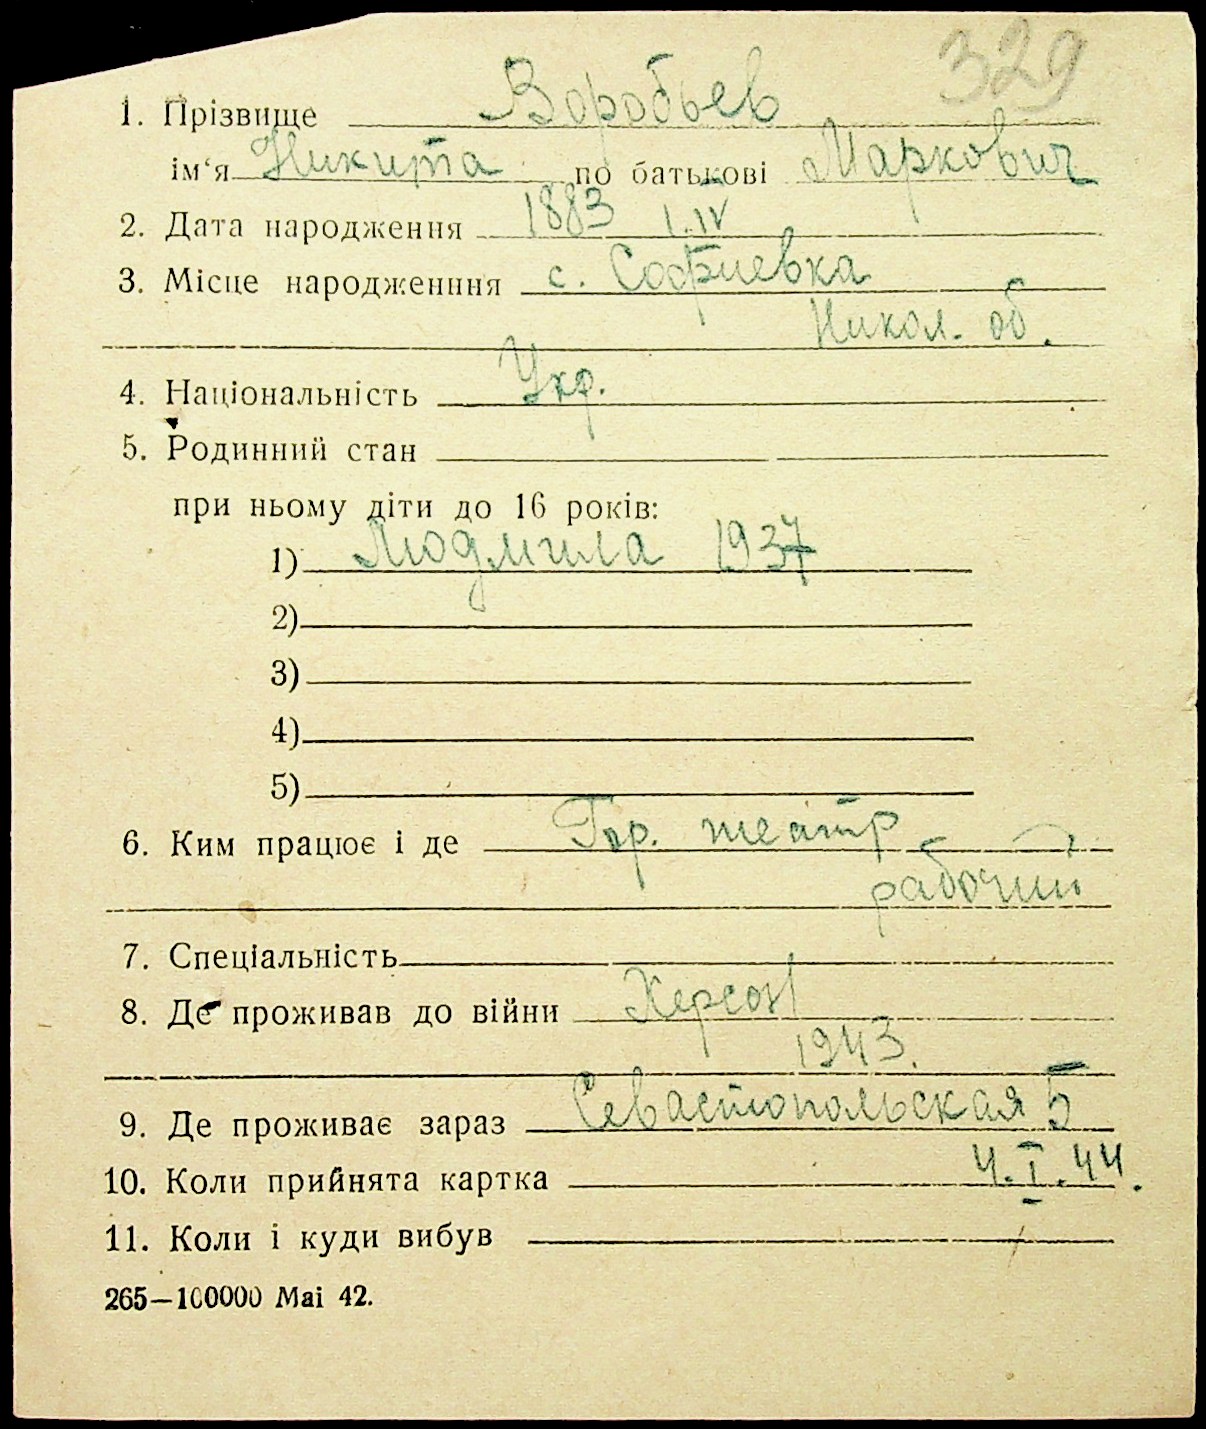 329
1. Прізвище Воробьев
ім‘я Никита по батькові Маркович
2. Дата народження 1883 1.IV
3. Місце народженння с. Софиевка
Никол. об.
4. Національність Укр.
5. Родинний стан
при ньому діти до 16 років:
1) Людмила 1937
2)
3)
4)
5)
6. Ким працює і де Гор. театр
рабочий
7. Спеціальність
8. Де проживав до війни Херсон
1943.
9. Де проживає зараз Севастопольская 5
10. Коли прийнята картка 4.I.44.
11. Коли і куди вибув
265—100000 Mai 42.